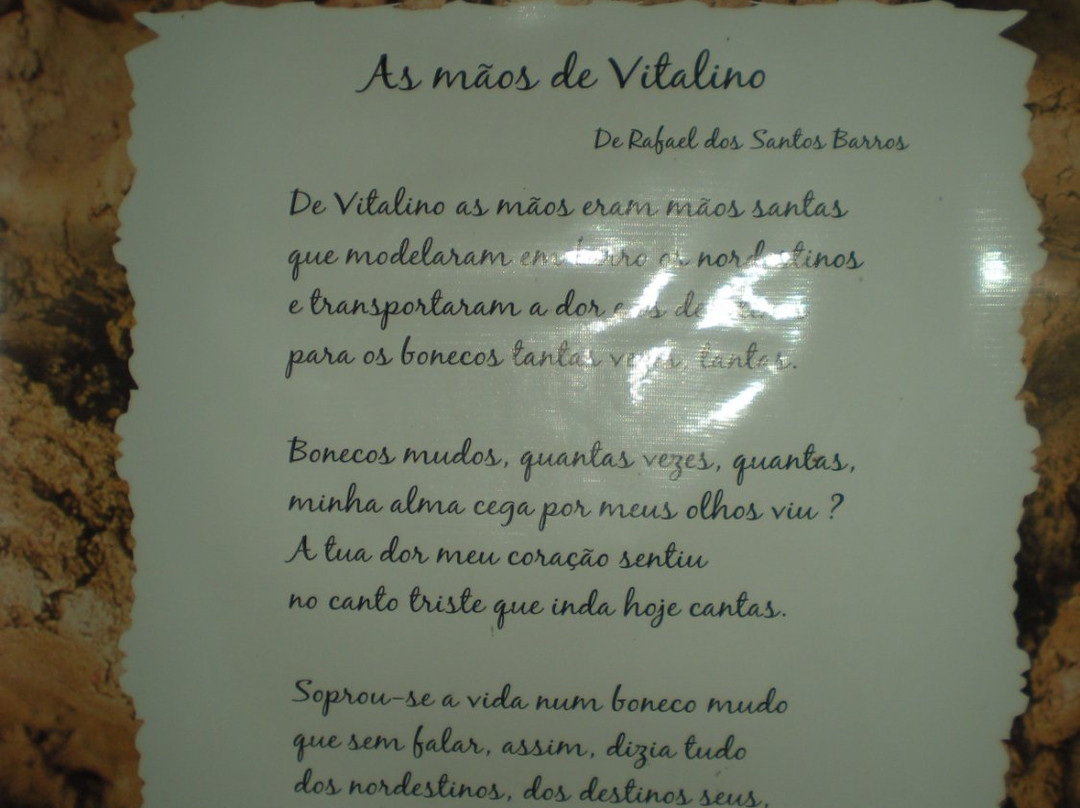 As mãos de Vitalino
De Rafael dos Santos Barros
De Vitalino as mãos eram mãos santas
que modelaram em barro os nordestinos
e transportaram a dor
para os bonecos tantas vezes, tantas.
Bonecos mudos, quantas vezes, quantas,
minha alma cega por meus olhos viu ?
A tua dor meu coração sentiu
no canto triste que inda hoje cantas.
Soprou-se a vida num boneco mudo
que sem falar, assim, dizia tudo
dos nordestinos, dos destinos seus,